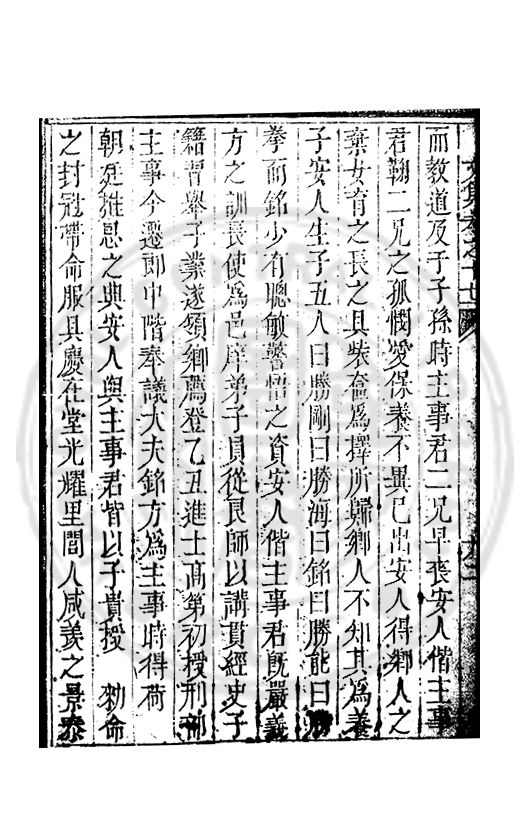 而教道及于子孫時主事君二兄早喪安人偕主事
君鞠二兄之孤憫愛保養不異己出安人得鄉人之
棄女育之長之具裝奩為擇所歸鄉人不知其為養
子安人生子五人曰勝剛曰勝海曰銘曰勝能曰勝
拳而銘少有聰敏警悟之資安人偕主事君既嚴義
方之訓長使為邑庠弟子員從良師以講貫經史子
籍習舉子業遂領鄉薦登乙丑進士高第初授刑部
主事今遷郎中階奉議大夫銘方為主事時得荷
朝廷推恩之典安人與主事君皆以子貴授 勑命
之封冠帶命服具慶在堂光耀里閭人咸羨之景泰